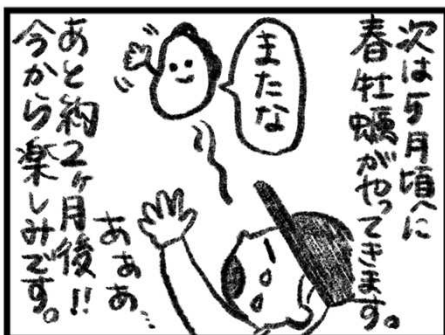 次は5月頃に
春牡蠣がやってきます。
またな
あぁぁ…
あと約2ヶ月後!!
今から楽しみです。